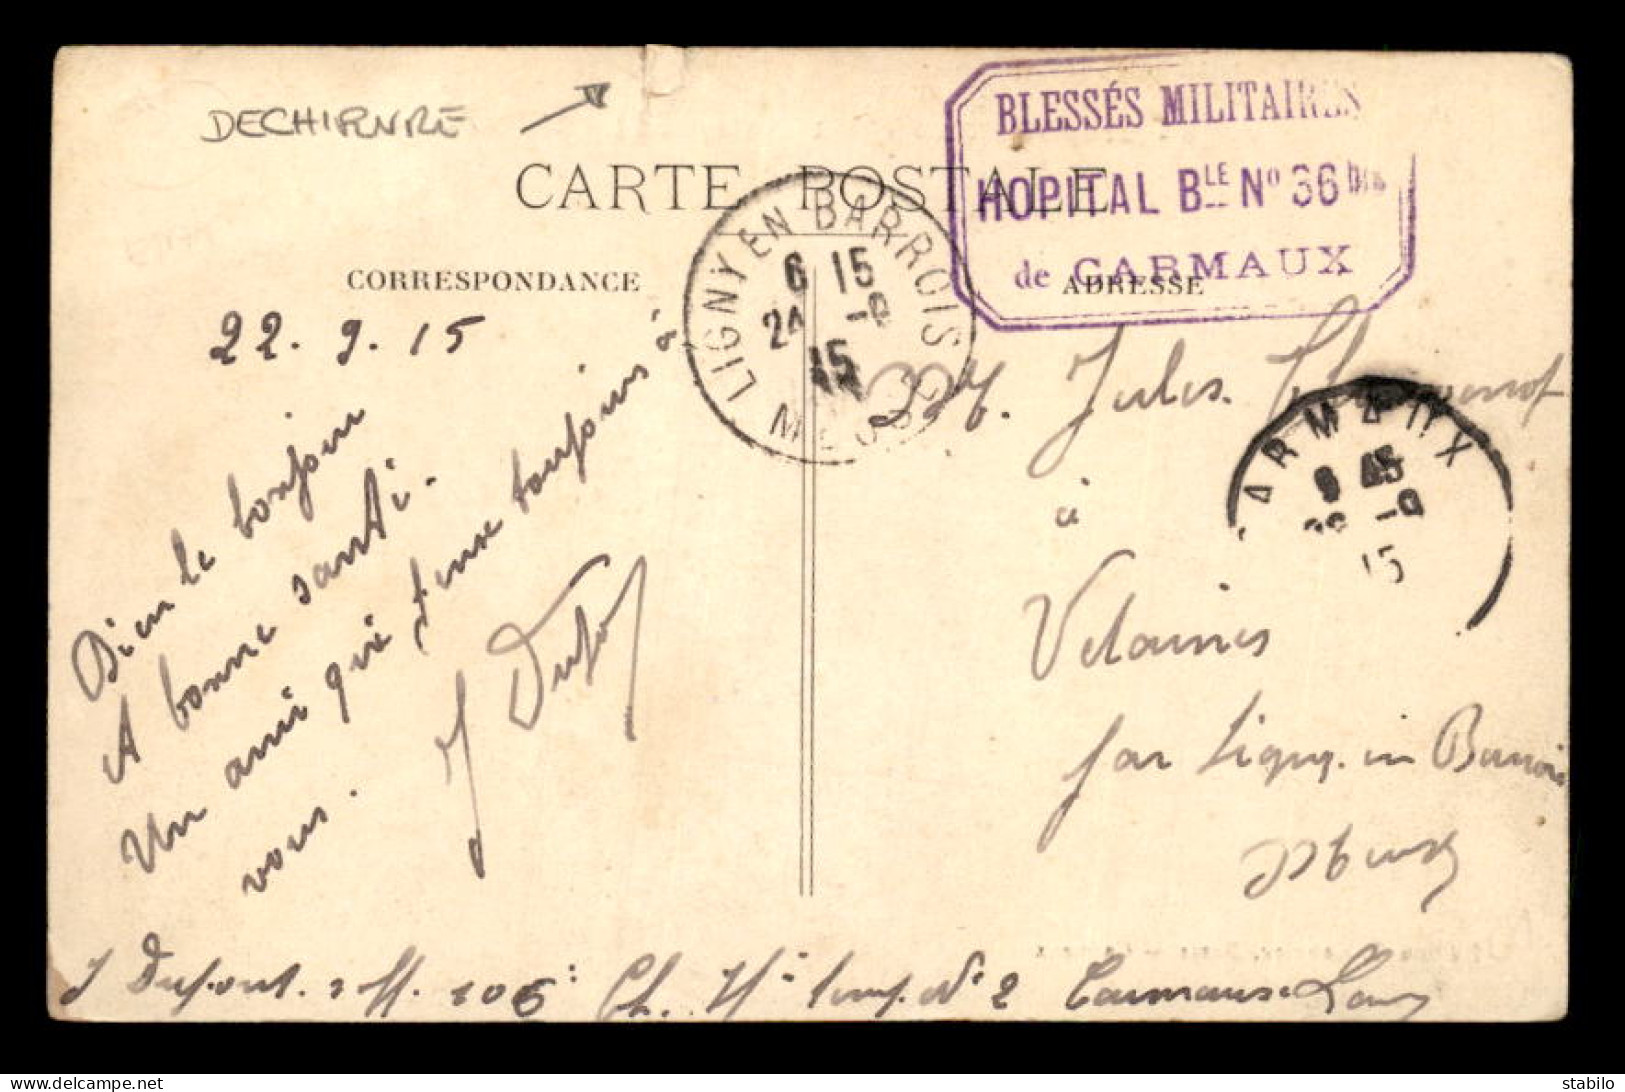 DECHIRURE
BLESSÉS MILITAIRES
HOPITAL BLE No 36 bis
de CARMAUX
CARTE POSTALE
CORRESPONDANCE
ADRESSE
LIGNY EN BARROIS
6 15
24 -9
15
MEUSE
CARMAUX
9 45
-9
15
22.9.15
Bien le bonjour
A bonne santé.
Un ami qui pense toujours à
vous.
J Dupont
M. Jules
à
Velaines
par Ligny. en Barrois
Meuse
J Dupont. 106 Ch. Hal temp. No 2 Carmaux Tarn
delcampe.net
stabilo